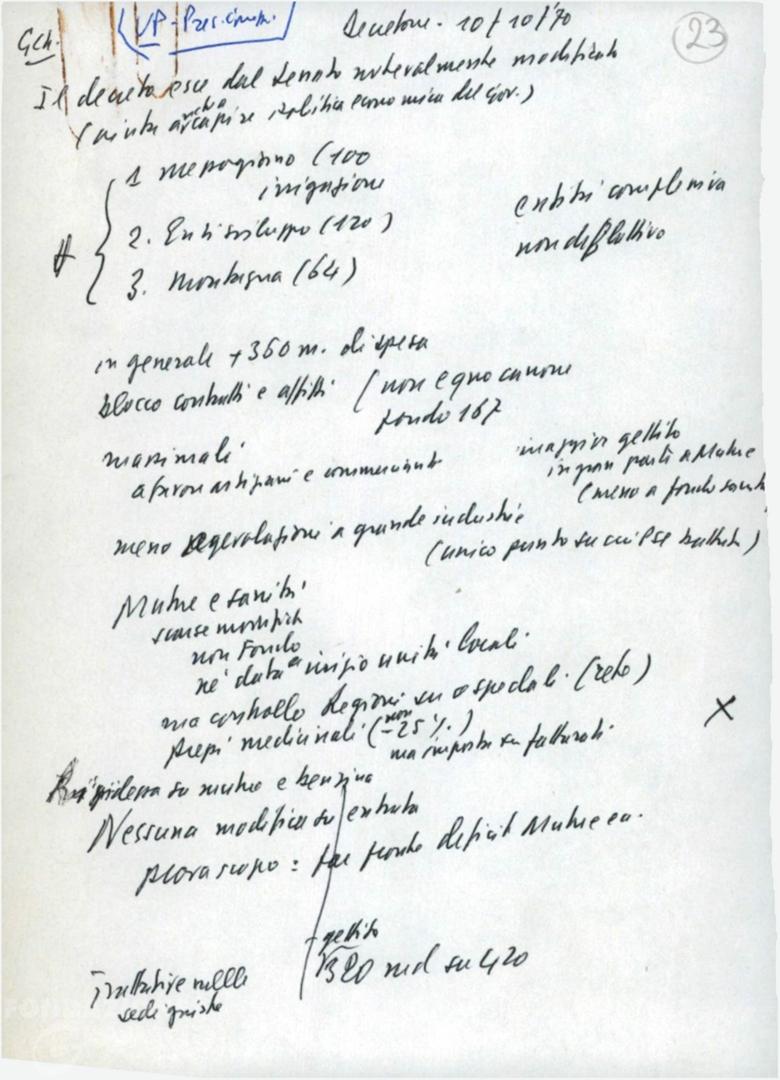 Gch. (VP - Pres. Cons. Decretone. 10/10/70 23
Il decreto esce dal Senato notevolmente modificato
(aiuta a capire politica economica del Gov.)
1 mezzogiorno (100
irrigazione
2. Enti sviluppo (120)
3. Montagna (64)
entità complessiva
non deflattivo
in generale + 360 m. di spesa
blocco contratti e affitti (non equo canone
fondo 167
massimali
a favore artigiani e commercianti
maggior gettito
in gran parte a Mutue
(meno a fondo sanit
meno agevolazioni a grande industria
(unico punto su cui si è battuta)
Mutue e sanità
scarse modifiche
non Fondo
né data inizio unità locali
ma controllo Regioni su ospedali. (rete)
prezzi medicinali (non -25%.)
ma imposta su fatturati
X
su mutue e benzina
Nessuna modifica su entrata
scopo: far fronte deficit Mutue ecc.
gettito
320 md su 420
Trattative nelle
sedi giuste